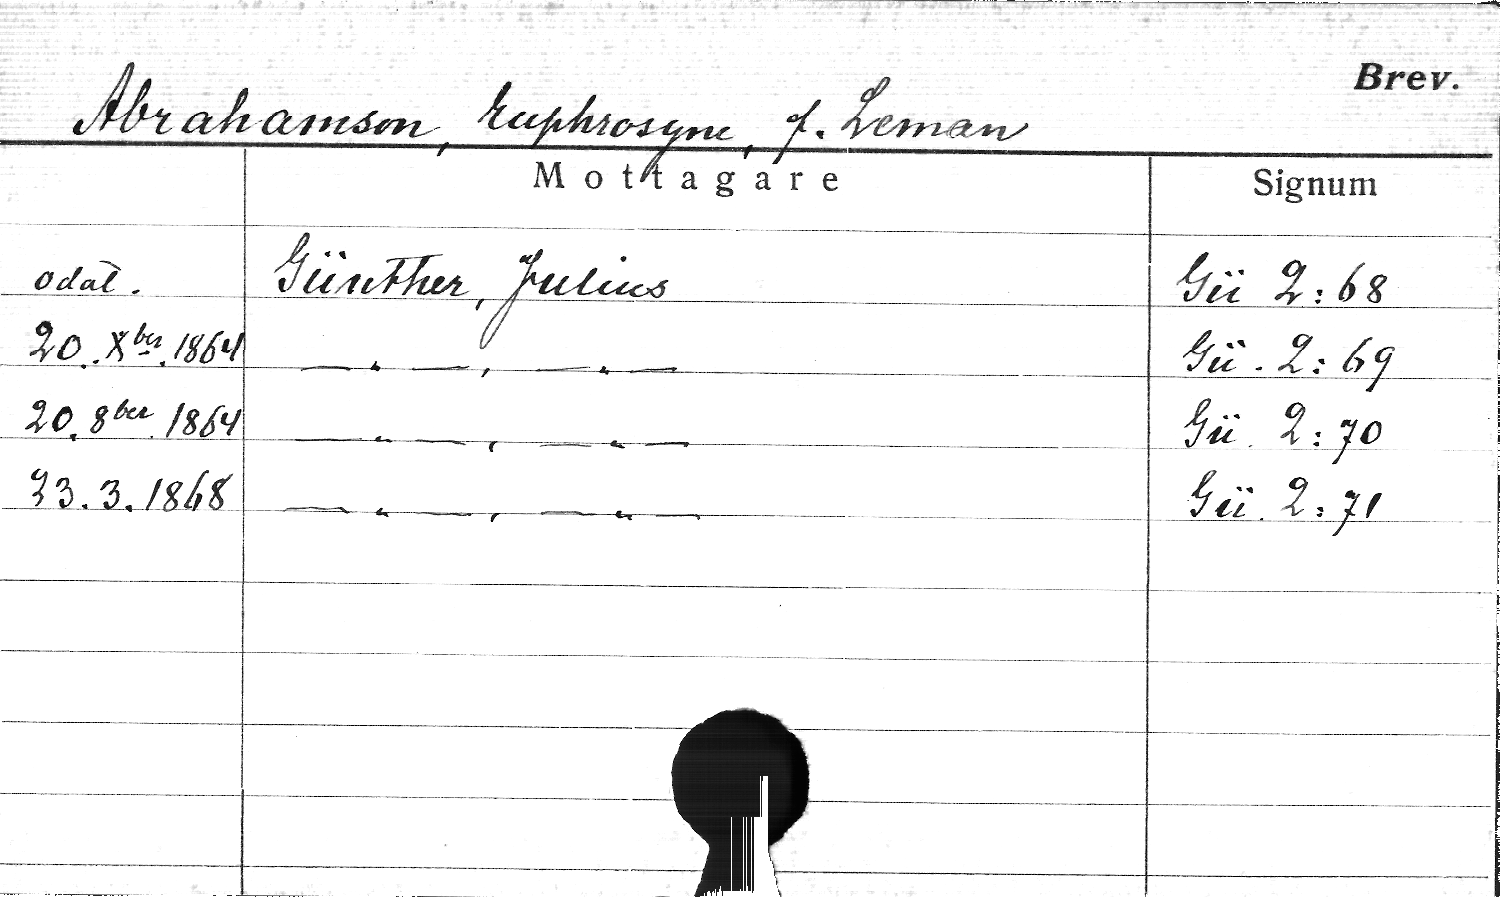 Brev.
Abrahamson, Euphrosyne, f. Leman
Mottagare Signum
odat. Günther, Julius Gü 2:68
20. Xber. 1864 — " — , — " — Gü. 2:69
20. 8ber. 1864 — " — , — " — Gü. 2:70
23.3.1868 — " — , — " — Gü. 2:71